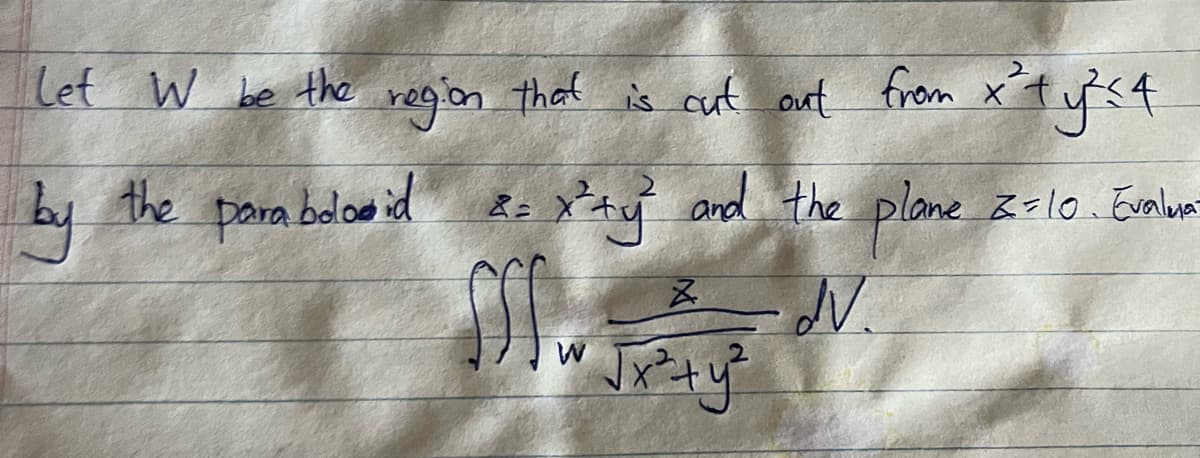 Let W be the region that is cut out from x²+y²≤4
by the paraboloid z= x²+y² and the plane z=10. Evaluat
∭_W z/√(x²+y²) dV.